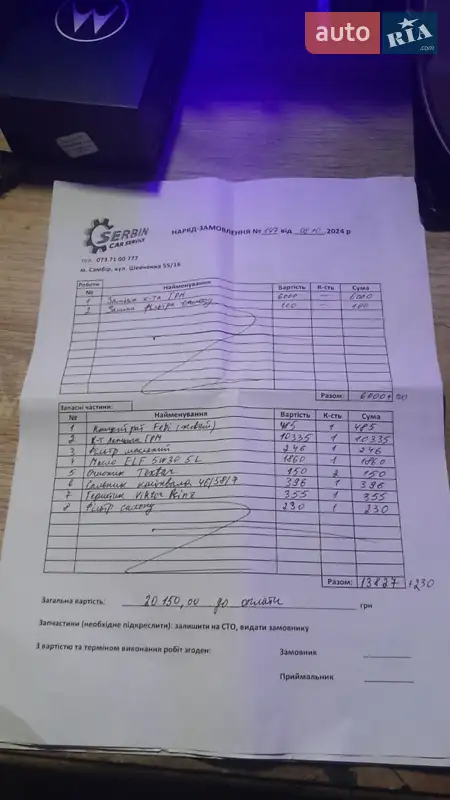 auto RIA .com
SERBIN
CAR SERVICE
НАРЯД-ЗАМОВЛЕННЯ № 147 від 2024 р
тел. 073 71 00 777
м. Самбір, вул. Шевченка 55/16
Роботи
№ Найменування Вартість К-сть Сума
1 Заміна к-та ГРМ 6000 — 6000
2 Заміна фільтра салону 100 — 100
Разом: 6000 + 100
Запасні частини:
№ Найменування Вартість К-сть Сума
1 Концентрат Febi (жовтий) 485 1 485
2 К-т ГРМ 10335 1 10335
3 Фільтр масляний 246 1 246
4 Масло ELF 5W30 5L 1860 1 1860
5 Очисник Textar 150 2 150
6 Сальник колінвала 46/58/7 396 1 396
7 Герметик Viktor Reinz 355 1 355
8 Фільтр салону 230 1 230
Разом: 13827 +230
Загальна вартість: 20 150,00 до оплати грн
Запчастини (необхідне підкреслити): залишити на СТО, видати замовнику
З вартістю та терміном виконання робіт згоден: Замовник
Приймальник